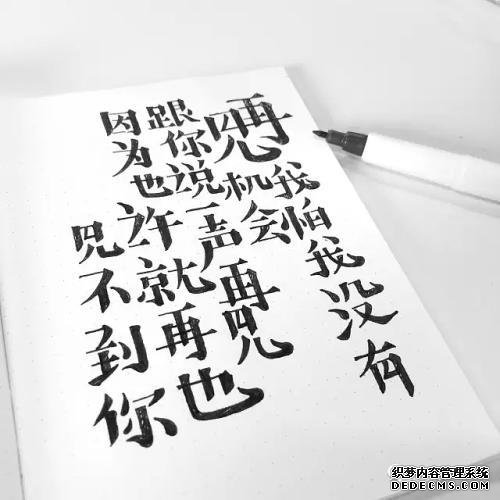 再见
我怕我没有
机会
跟你说一声再见
因为也许就再也
见不到你
织梦内容管理系统
DEDECMS.COM